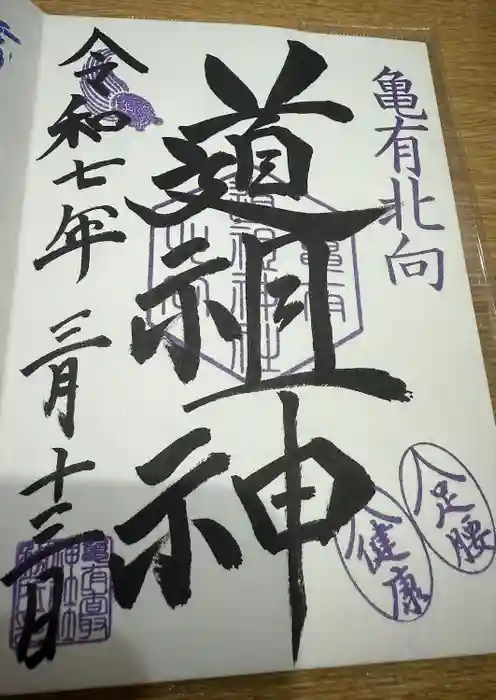 亀有北向
道祖神
令和七年 三月十三日
足腰
健康